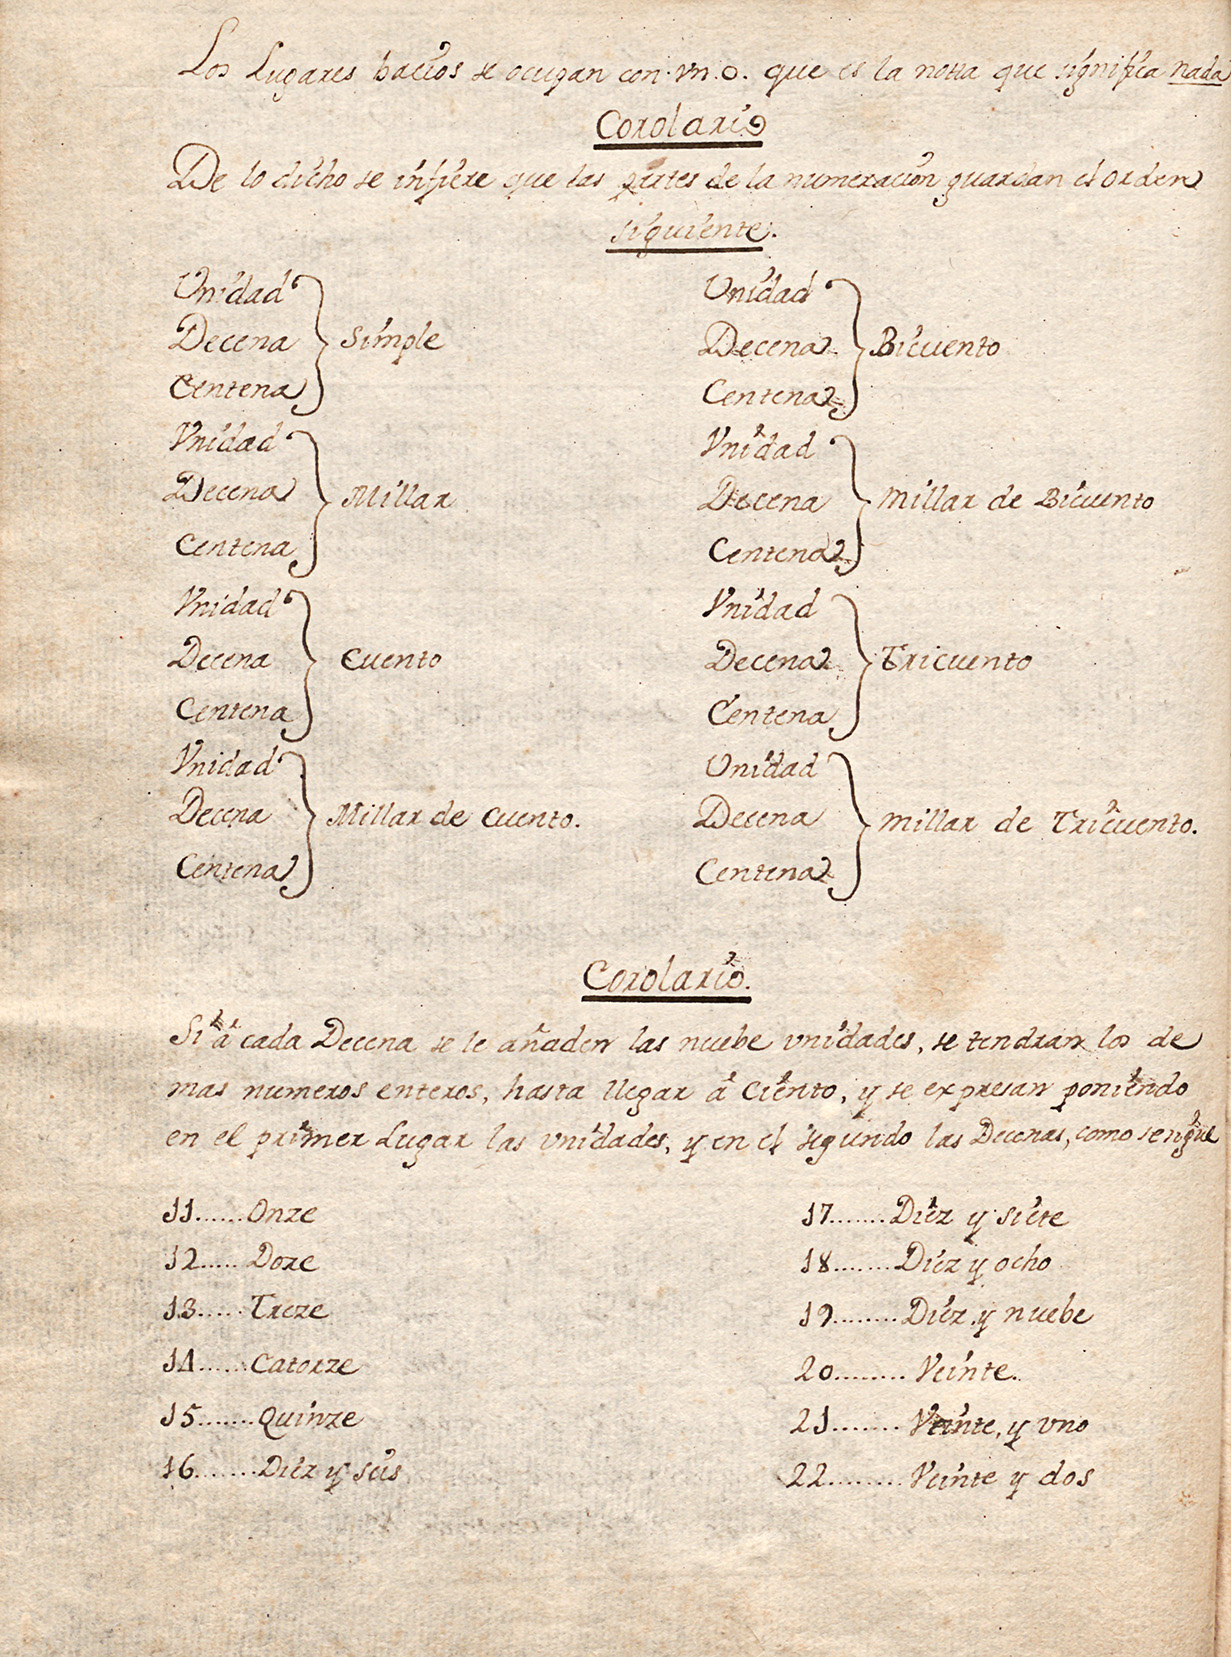 Los Lugares bacios se ocupan con vn.o. que es la notta que significa nada
Corolario
De lo dicho se infiere que las partes de la numeracion guardan el orden
siguiente.
Unidad
Decena Simple
Centena
Vnidad
Decena Millar
Centena
Vnidad
Decena Cuento
Centena
Vnidad
Decena Millar de Cuento.
Centena
Unidad
Decena Bicuento
Centena
Vnidad
Decena Millar de Bicuento
Centena
Vnidad
Decena Tricuento
Centena
Unidad
Decena millar de Tricuento.
Centena
Corolario.
Si á cada Decena se le añaden las nuebe vnidades, se tendran los de
mas numeros enteros, hasta llegar á Ciento, y se expresan poniendo
en el primer Lugar las vnidades, y en el segundo las Decenas, como sengue
11......Onze
12.....Doze
13.....Treze
14......Catorze
15.......Quinze
16.......Diez y seis
17.......Diez y siete
18.......Diez y ocho
19........Diez y nuebe
20........Veinte.
21........Veinte, y vno
22.........Veinte y dos